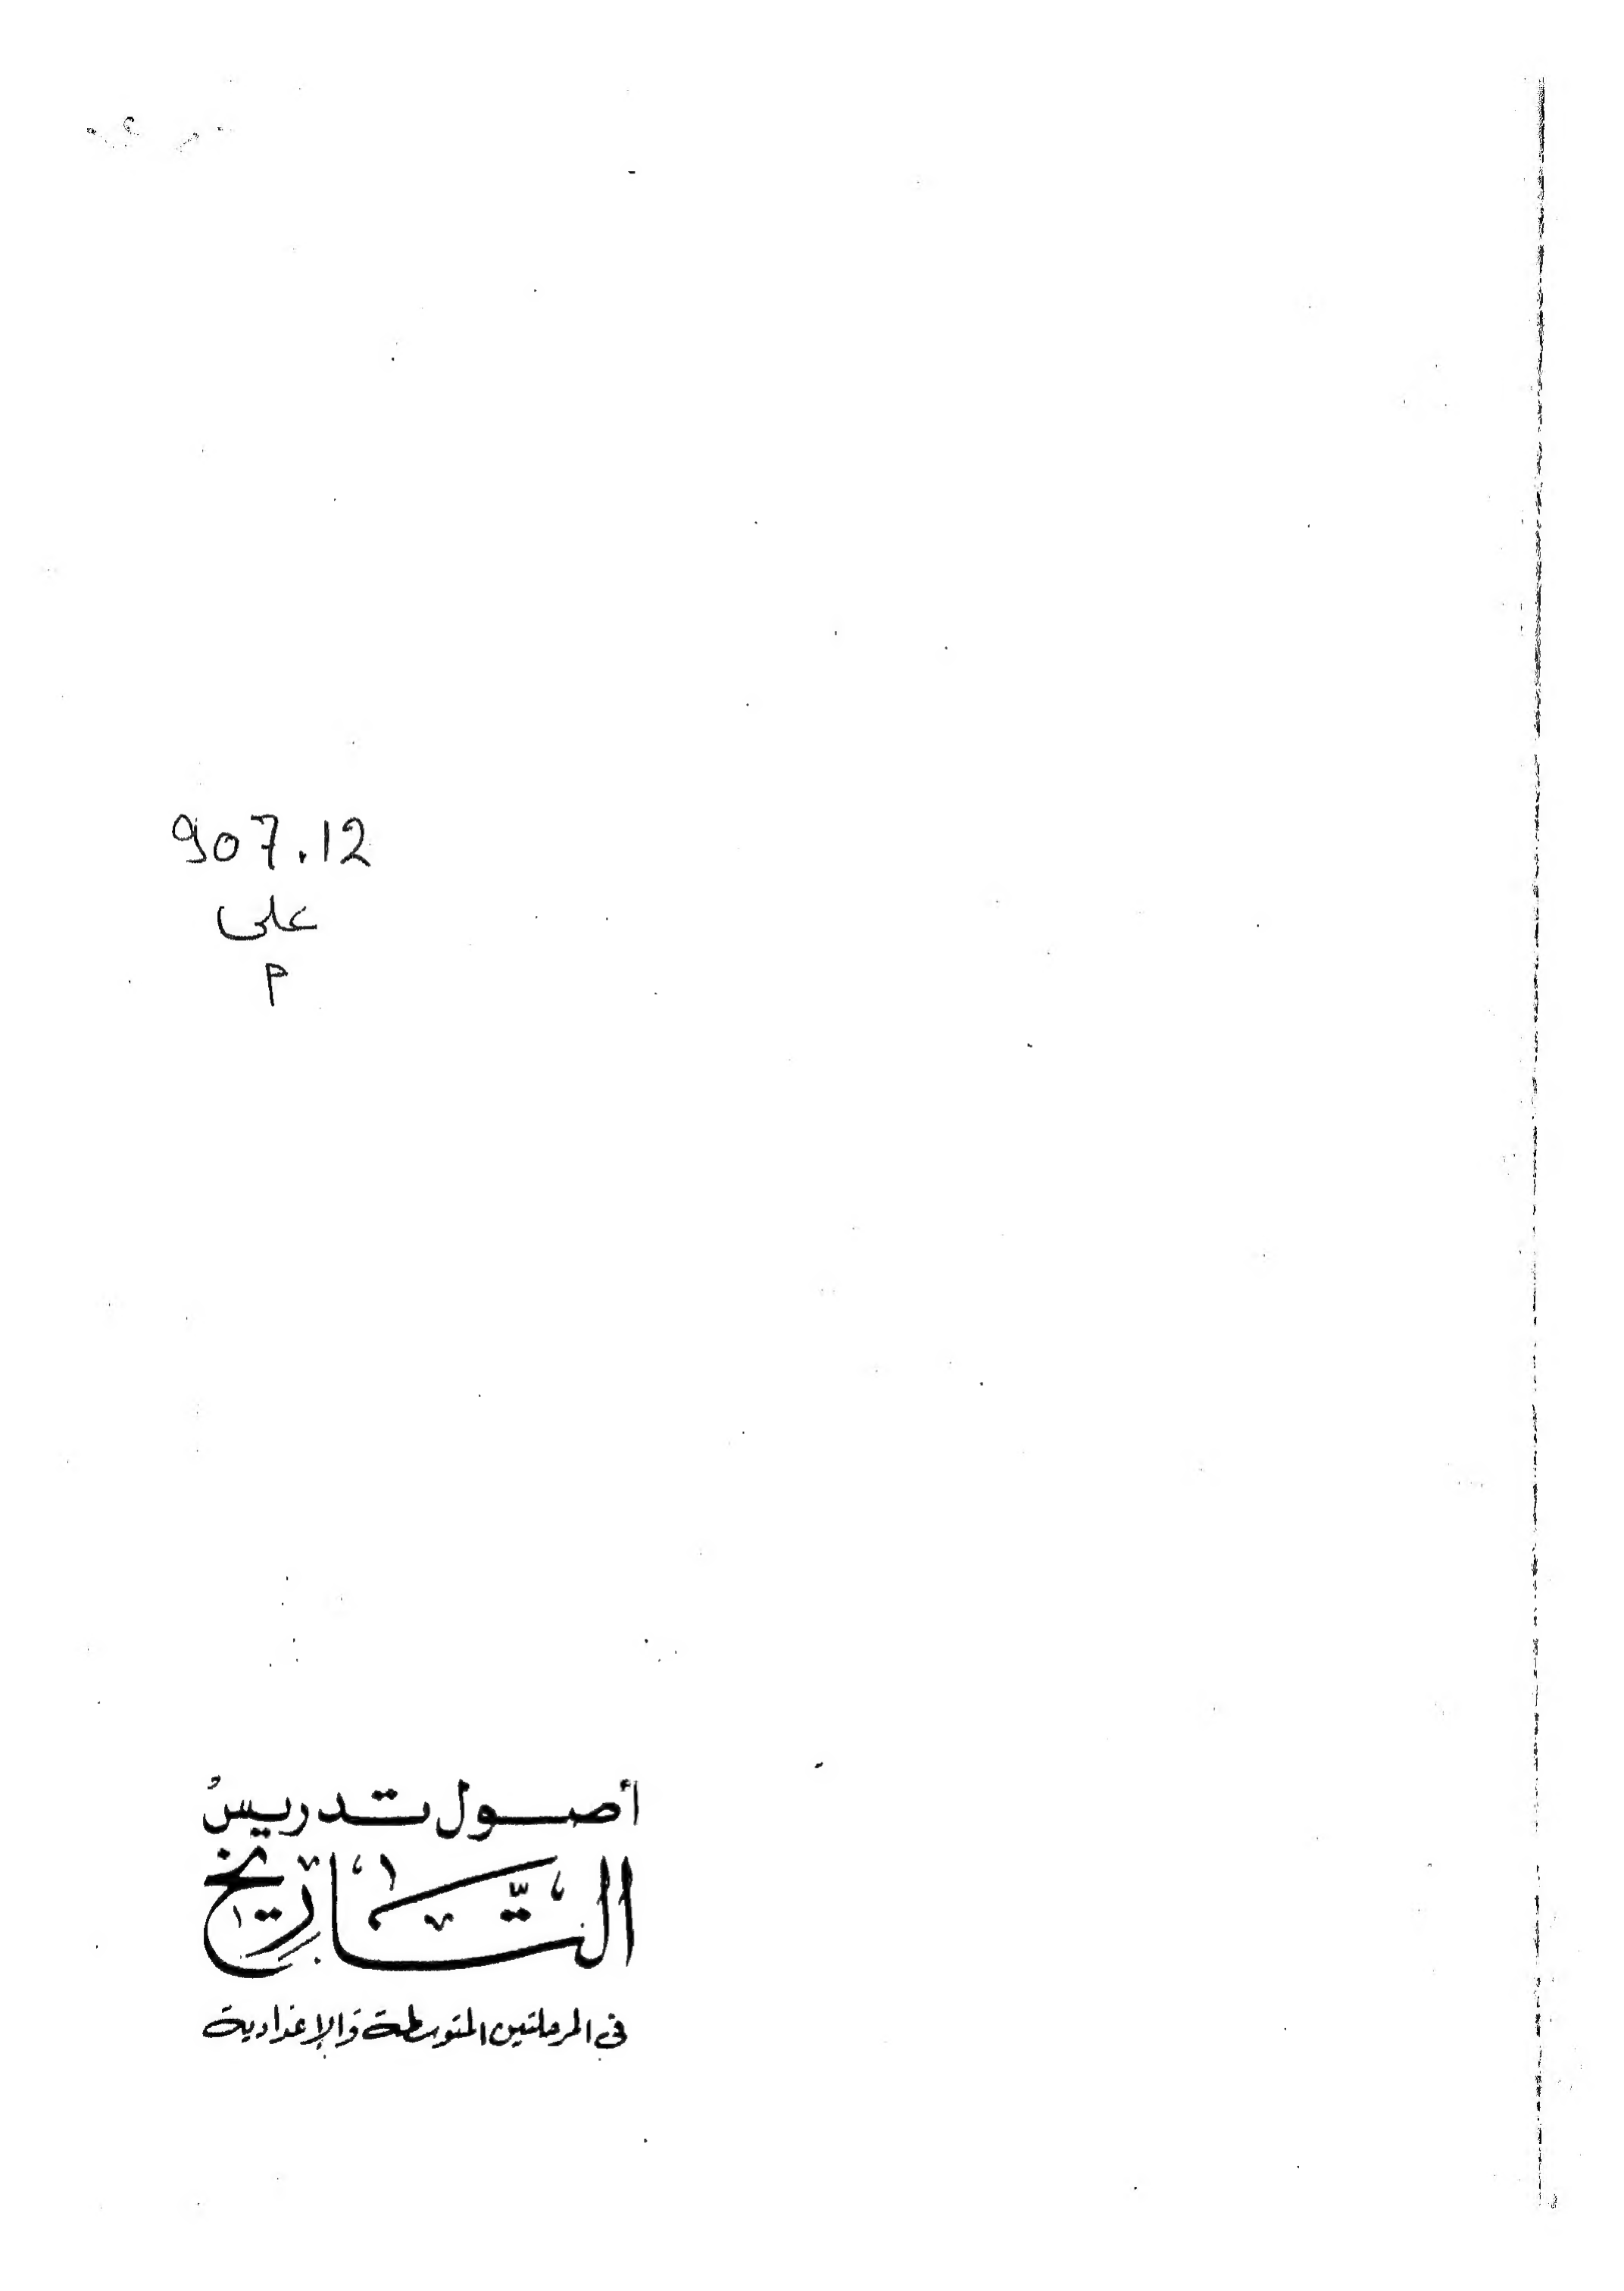 907.12
على
م
أصول تدريس
التاريخ
في المرحلتين المتوسطة والإعدادية